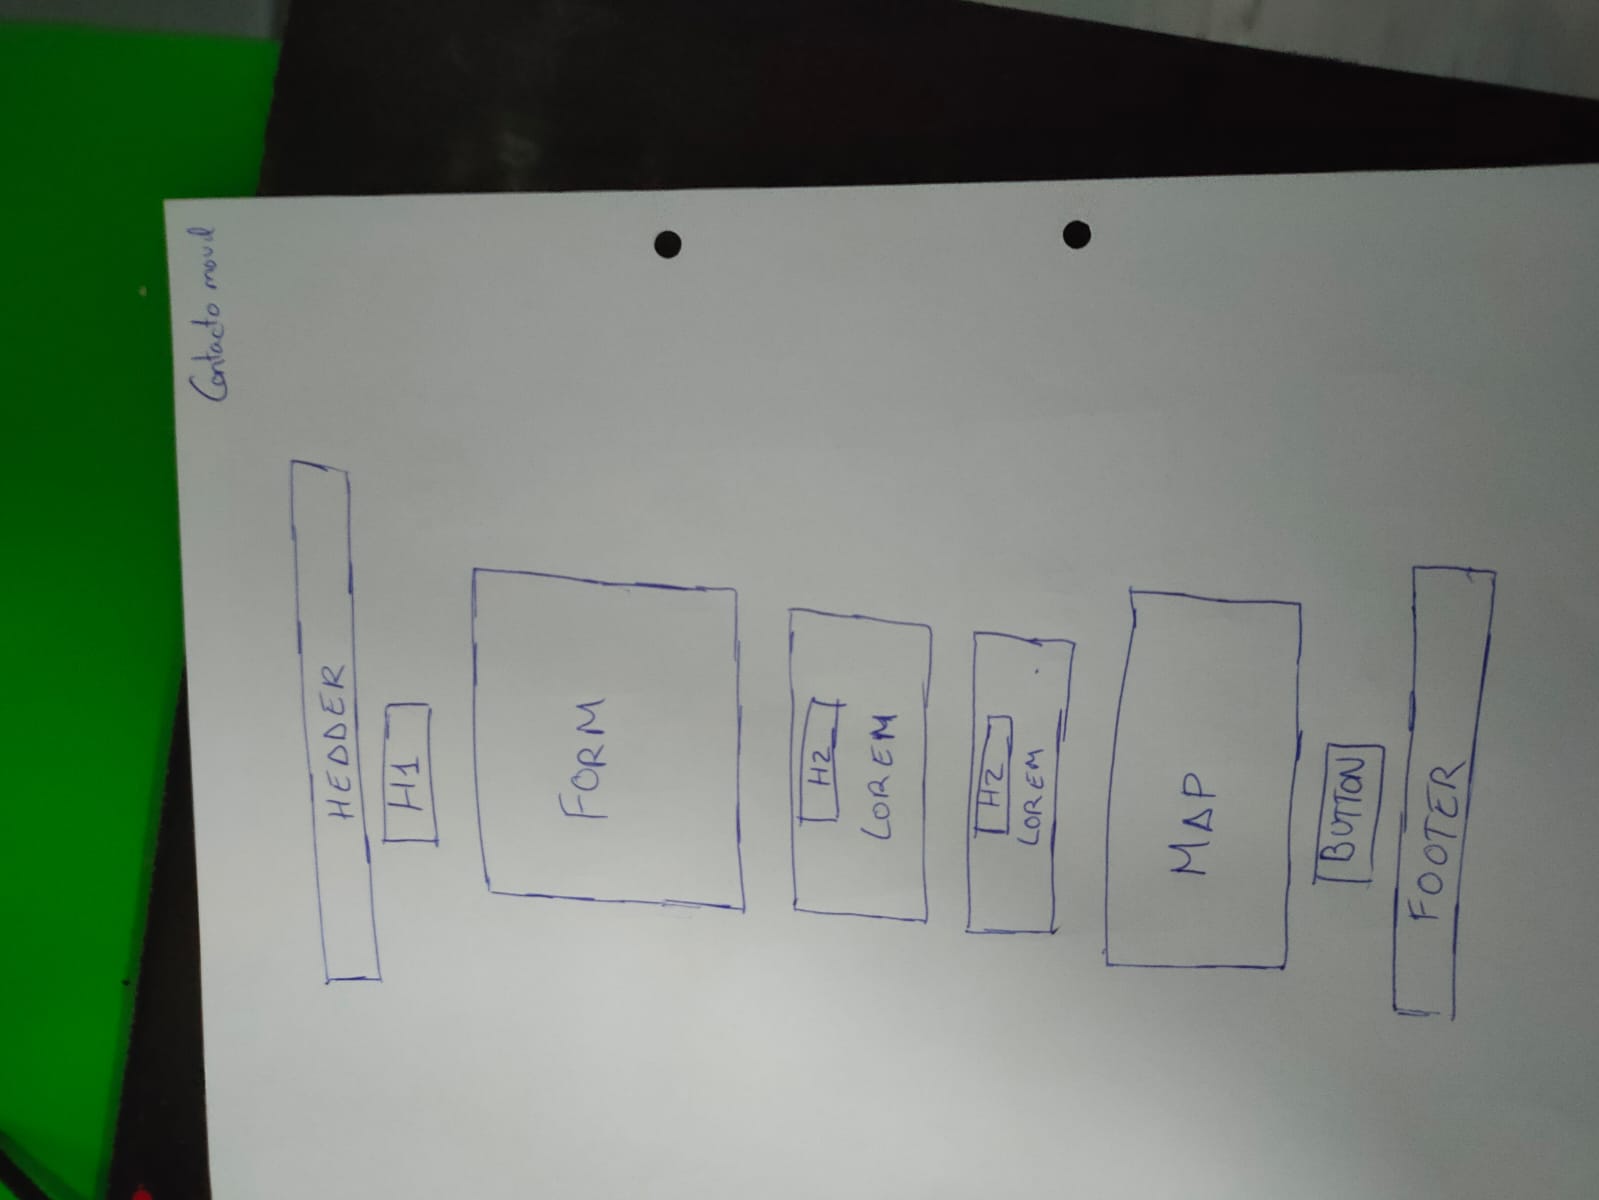 Contacto movil
HEDDER
H1
FORM
H2
LOREM
H2
LOREM
MAP
BUTTON
FOOTER